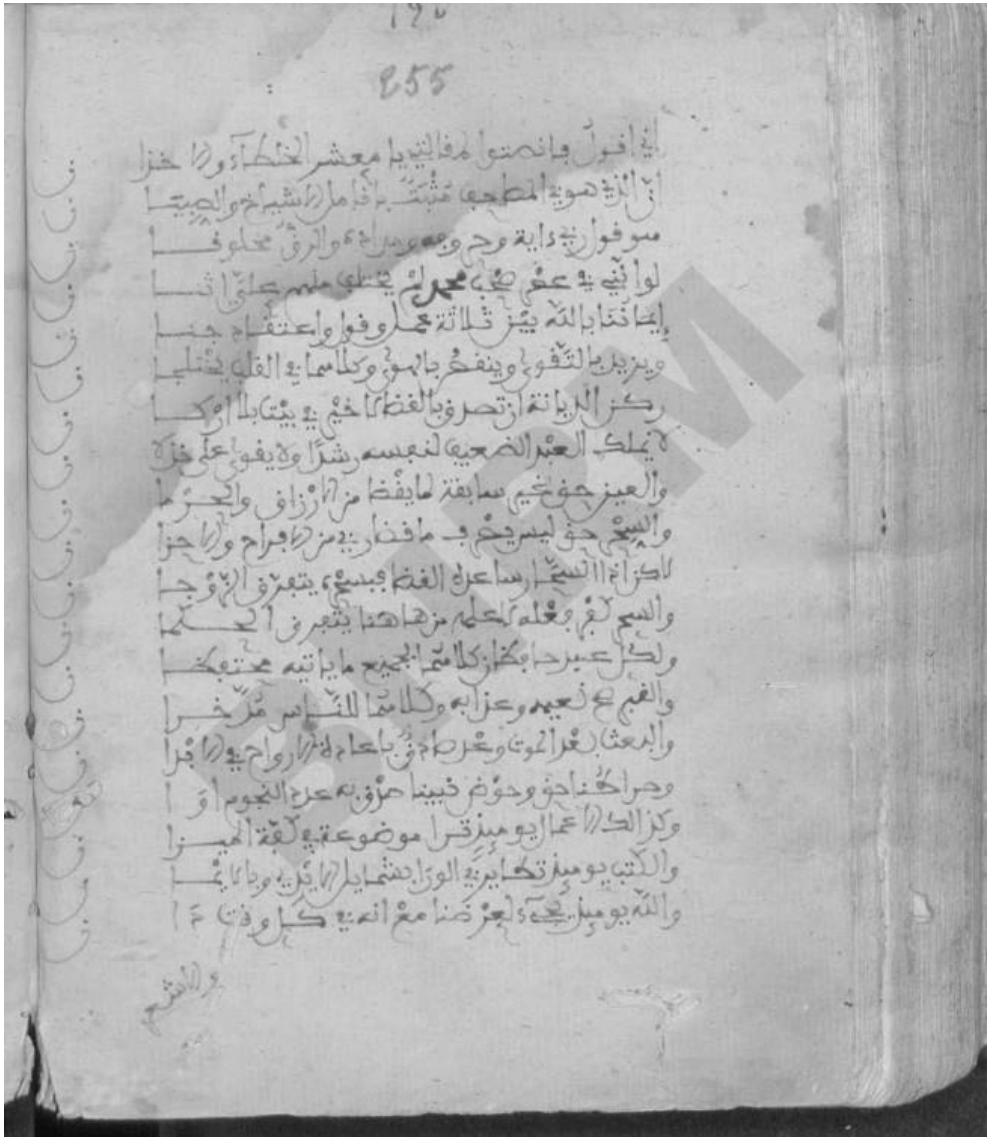 255
إني أقول فانصتوا لمقالتي يا معشر الخلطاء والاخوا ن
ان الذي هو في المصاحف مثبت بانامل الاشياخ والصبيا ن
هو قول ربي ءاية وحروفه ومدادنا والرق مخلوقا ن
لو انني في عصر صحب محمد لم يختلف منهم علي اثنا ن
إيماننا بالله بين ثلاثة عمل وقول واعتقاد جنا ن
ويزيد بالتقوى وينقص بالهوى وكلاهما في القلب يختلجا ن
ركن الديانة ان تصدق بالقضا لا خير في بيت بلا اركا ن
لا يملك العبد الضعيف لنفسه رشدا ولا يقوى على خذلا ن
والعين حق غير سابقة لما يقضا من الارزاق والحرما ن
والسحر حق ليس يخرق ما قضا ربي من الافراح والاحزا ن
لاكن اذا السحار ساعده القضا فبسحره يتفرق الزوجا ن
والسحر كفر فعله لا علمه من هاهنا يتفرق الحكما ن
ولكل عبد حافظان كلاهما لجميع ما ياتيه محتفظا ن
والقبر صح نعيمه وعذابه وكلاهما للناس مدخرا ن
والبعث بعد الموت وعد صادق باعادة الارواح في الابدا ن
وصراطنا حق وحوض نبينا صدق به عدد النجوم اوا ن
وكذلك الاعمال يومئذ ترا موضوعة في كفة الميزا ن
والكتب يومئذ تطاير في الورا بشمايل الايدي وبالايما ن
والله يومئذ يجيء لعرضنا مع انه في كل وقت دا ن